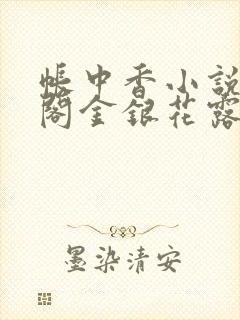 帐中香小説
閣金銀花露
墨染清安